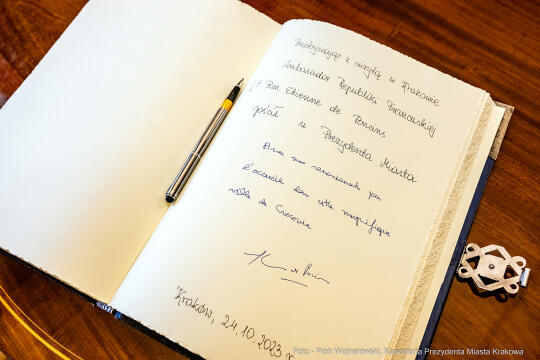 Przebywając z wizytą w Krakowie
Ambasador Republiki Francuskiej
J.E. Pan Etienne de Poncins
gościł u Prezydenta Miasta
Avec mes remerciements pour
l'accueil dans cette magnifique
ville de Cracovie
de Poncins
Kraków, 24.10.2023 r.
Foto - Piotr Wojnarowski, Kancelaria Prezydenta Miasta Krakowa